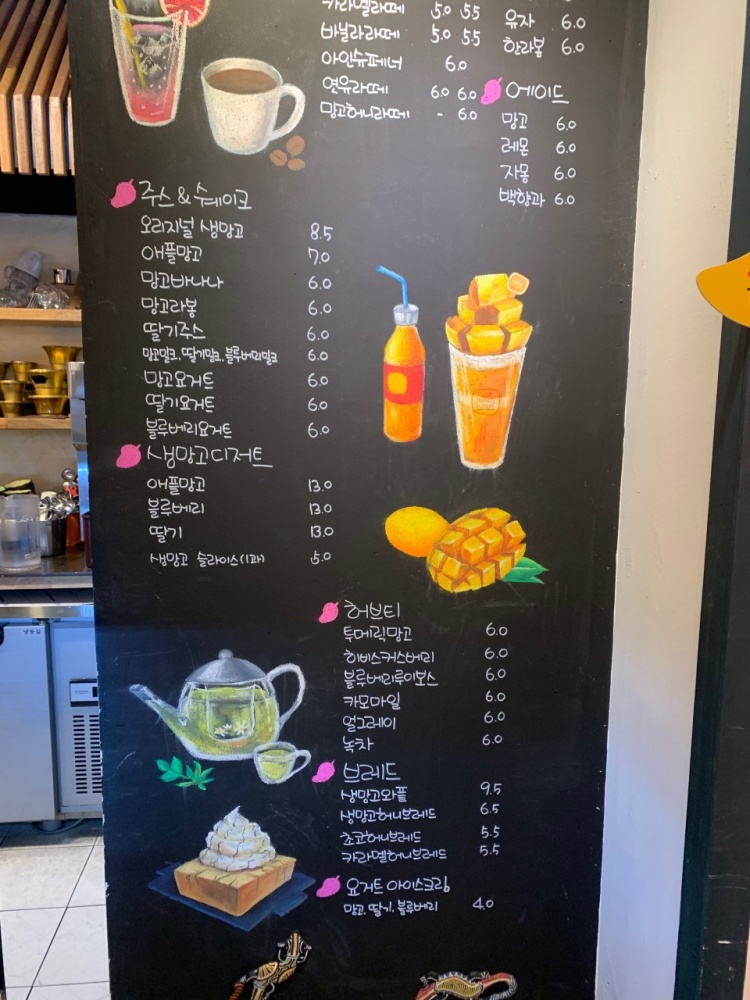 카라멜라떼 5.0 5.5
바닐라라떼 5.0 5.5
아인슈페너 6.0
연유라떼 6.0 6.0
망고허니라떼 - 6.0
유자 6.0
한라봉 6.0
에이드
망고 6.0
레몬 6.0
자몽 6.0
백향과 6.0
주스 & 쉐이크
오리지널 생망고 8.5
애플망고 7.0
망고바나나 6.0
망고라봉 6.0
딸기주스 6.0
망고밀크, 딸기밀크, 블루베리밀크 6.0
망고요거트 6.0
딸기요거트 6.0
블루베리요거트 6.0
생망고디저트
애플망고 13.0
블루베리 13.0
딸기 13.0
생망고 슬라이스(1과) 5.0
허브티
투메릭망고 6.0
히비스커스베리 6.0
블루베리루이보스 6.0
카모마일 6.0
얼그레이 6.0
녹차 6.0
브레드
생망고와플 9.5
생망고허니브레드 6.5
초코허니브레드 5.5
카라멜허니브레드 5.5
요거트 아이스크림
망고, 딸기, 블루베리 4.0